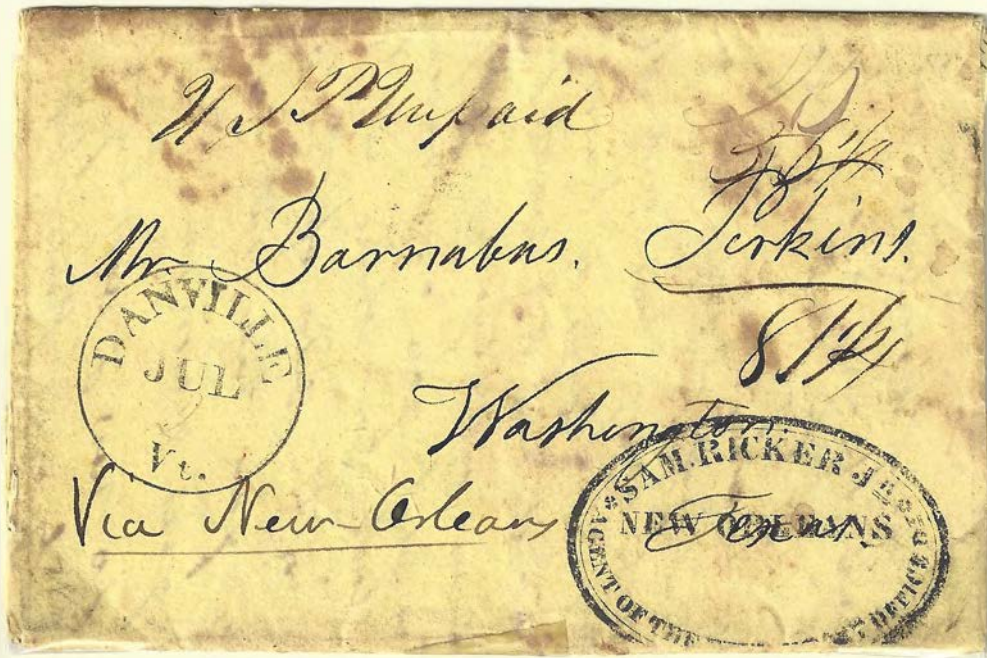 U S P Unpaid
Mr Barnabas. Perkins.
DANVILLE
JUL
Vt.
Washington.
Via New-Orleans Texas
SAM. RICKER Jr.
NEW ORLEANS
AGENT OF THE OFFICE